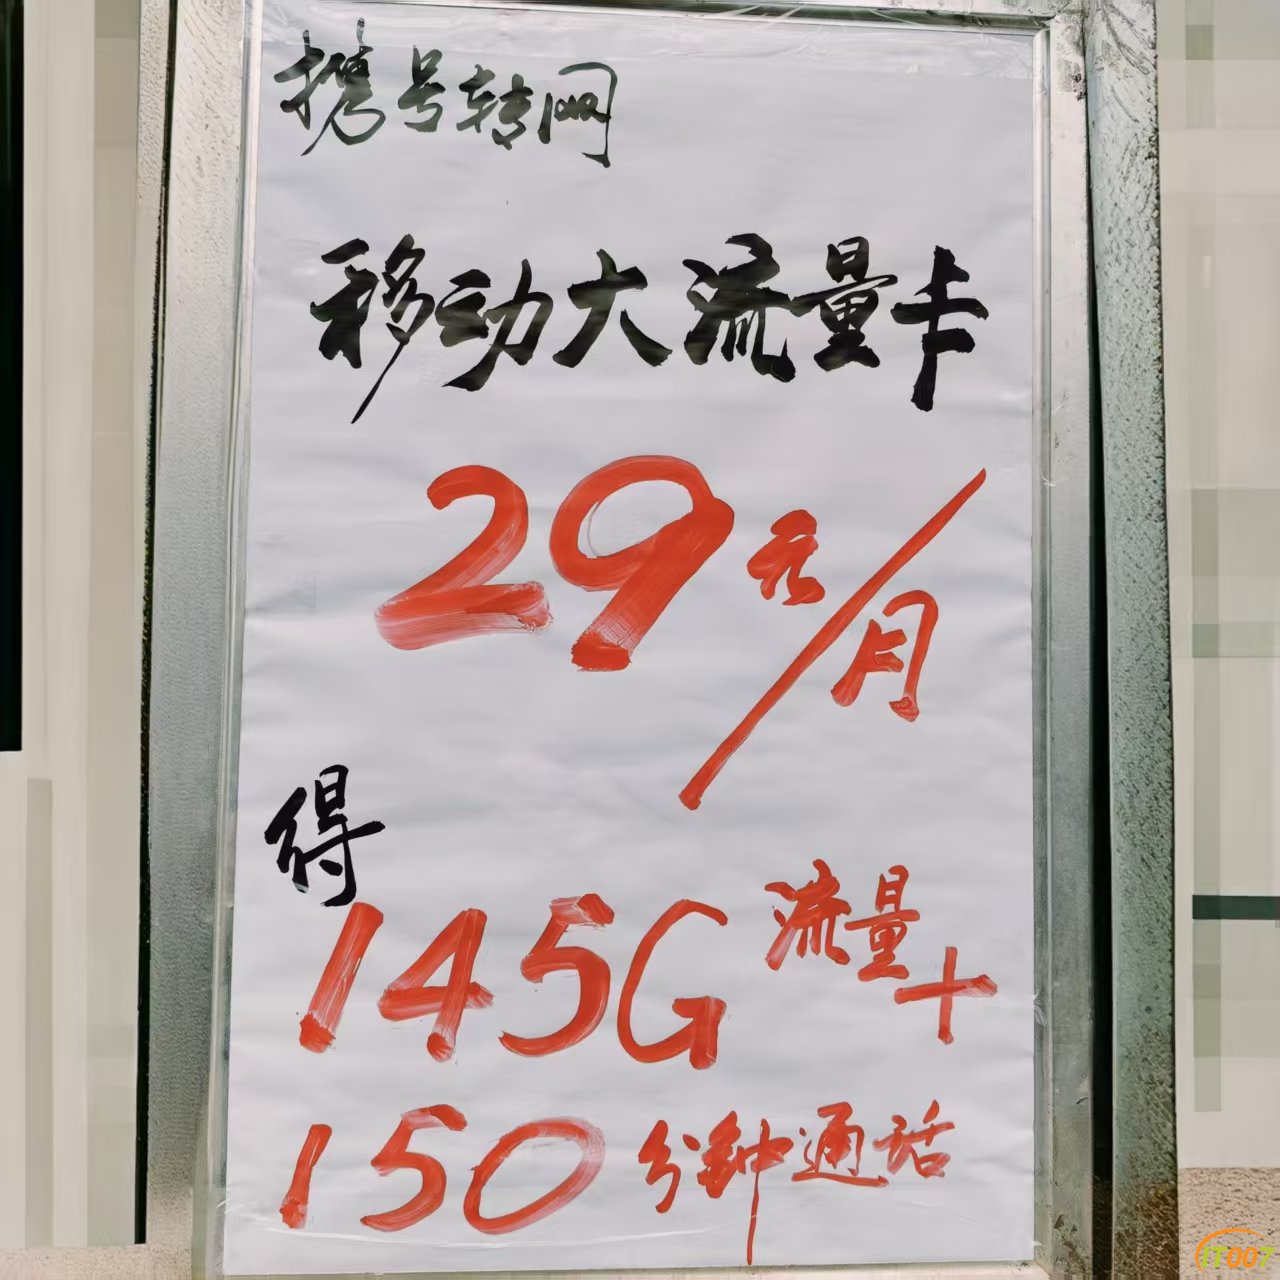 携号转网
移动大流量卡
29元/月
得
145G流量+
150分钟通话
IT007